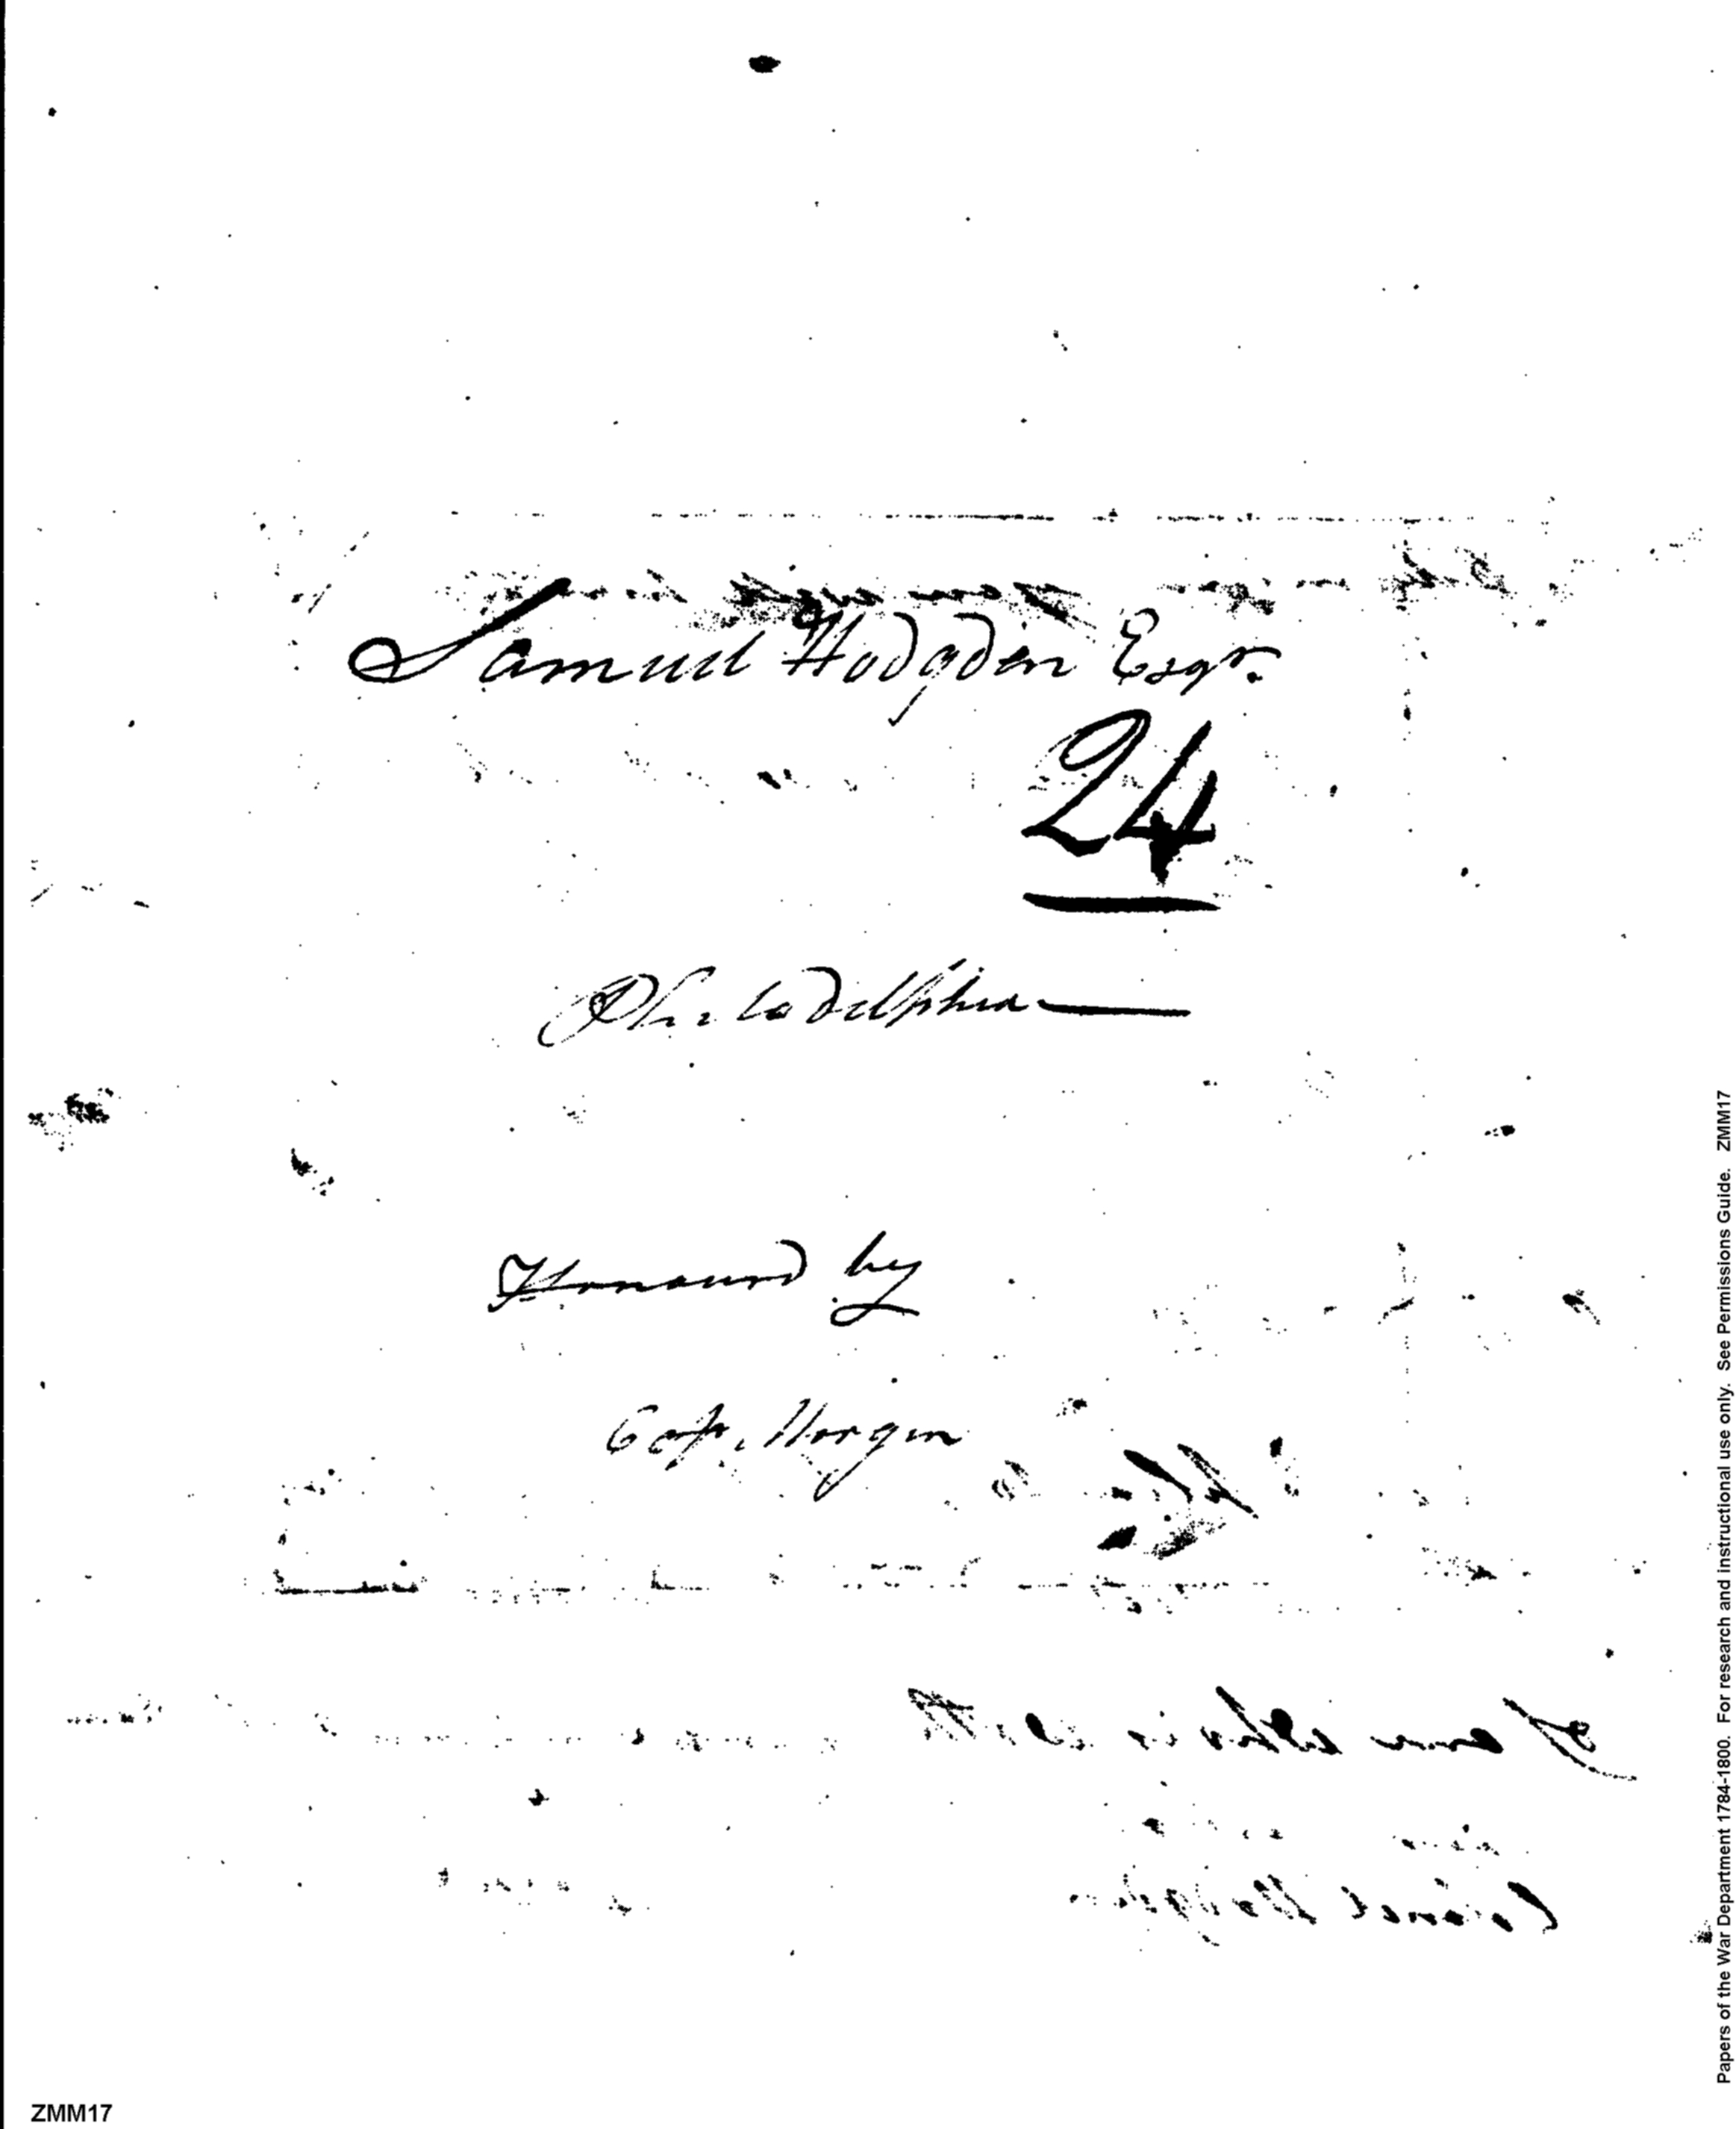 Samuel Hodgdon Esqr.
24
Philadelphia
Honoured by
Capt. Morgan
ZMM17
Papers of the War Department 1784-1800. For research and instructional use only. See Permissions Guide. ZMM17